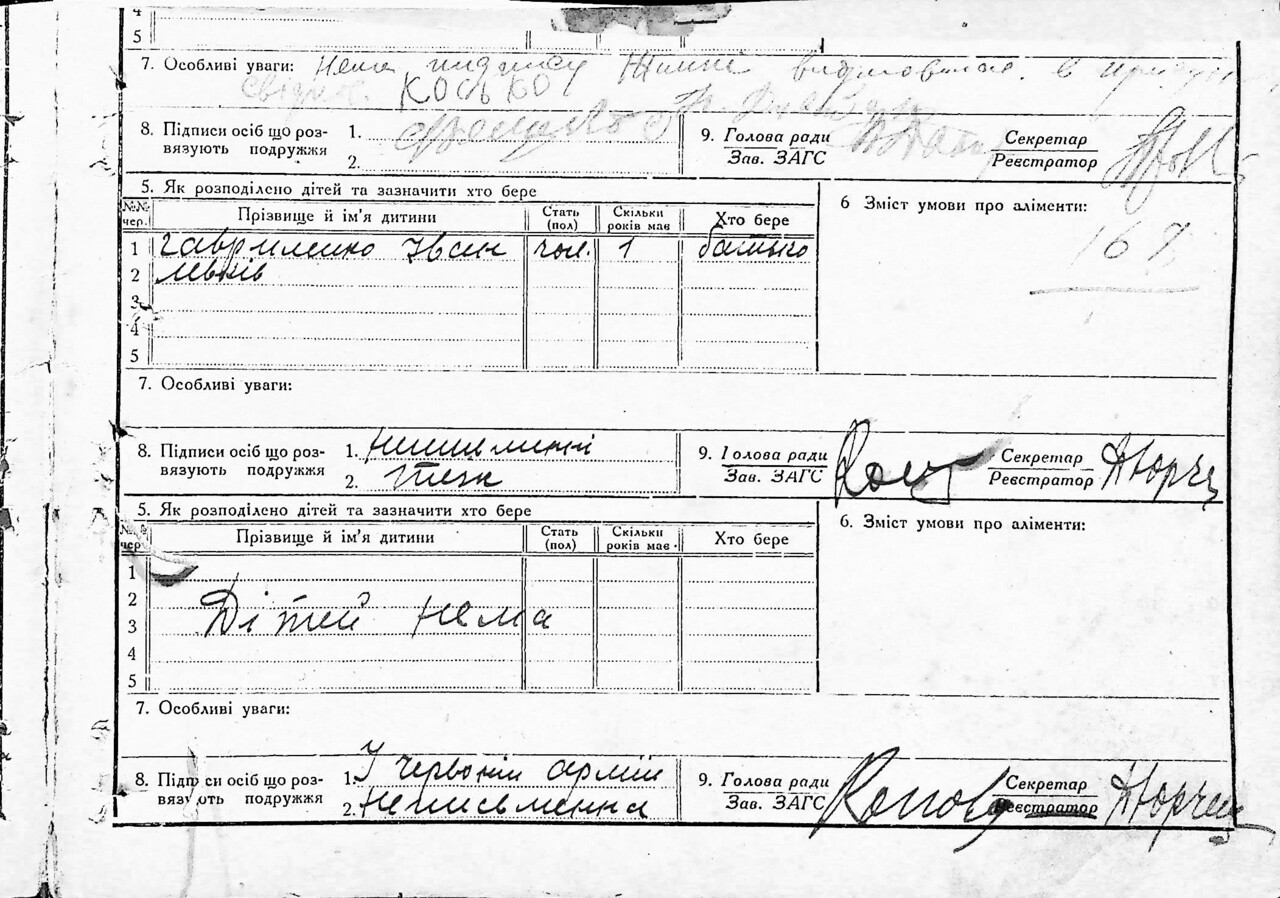 4
5
7. Особливі уваги: Нема підпису
КОСЬКО
8. Підписи осіб що роз-
вязують подружжя
1.
2.
9. Голова ради
Зав. ЗАГС
Секретар
Реєстратор
5. Як розподілено дітей та зазначити хто бере
№№ чер. Прізвище й ім'я дитини Стать (пол) Скільки років має Хто бере
1 Гавриленко Іван чол. 1 батько
2 Левків
3
4
5
6 Зміст умови про аліменти:
167
7. Особливі уваги:
8. Підписи осіб що роз-
вязують подружжя
1. Неписьменні
2. теж
9. Голова ради
Зав. ЗАГС
Секретар
Реєстратор
5. Як розподілено дітей та зазначити хто бере
№№ чер. Прізвище й ім'я дитини Стать (пол) Скільки років має Хто бере
1
2
Дітей нема
3
4
5
6. Зміст умови про аліменти:
7. Особливі уваги:
8. Підписи осіб що роз-
вязують подружжя
1. У червоній армії
2. Неписьменна
9. Голова ради
Зав. ЗАГС
Секретар
Реєстратор